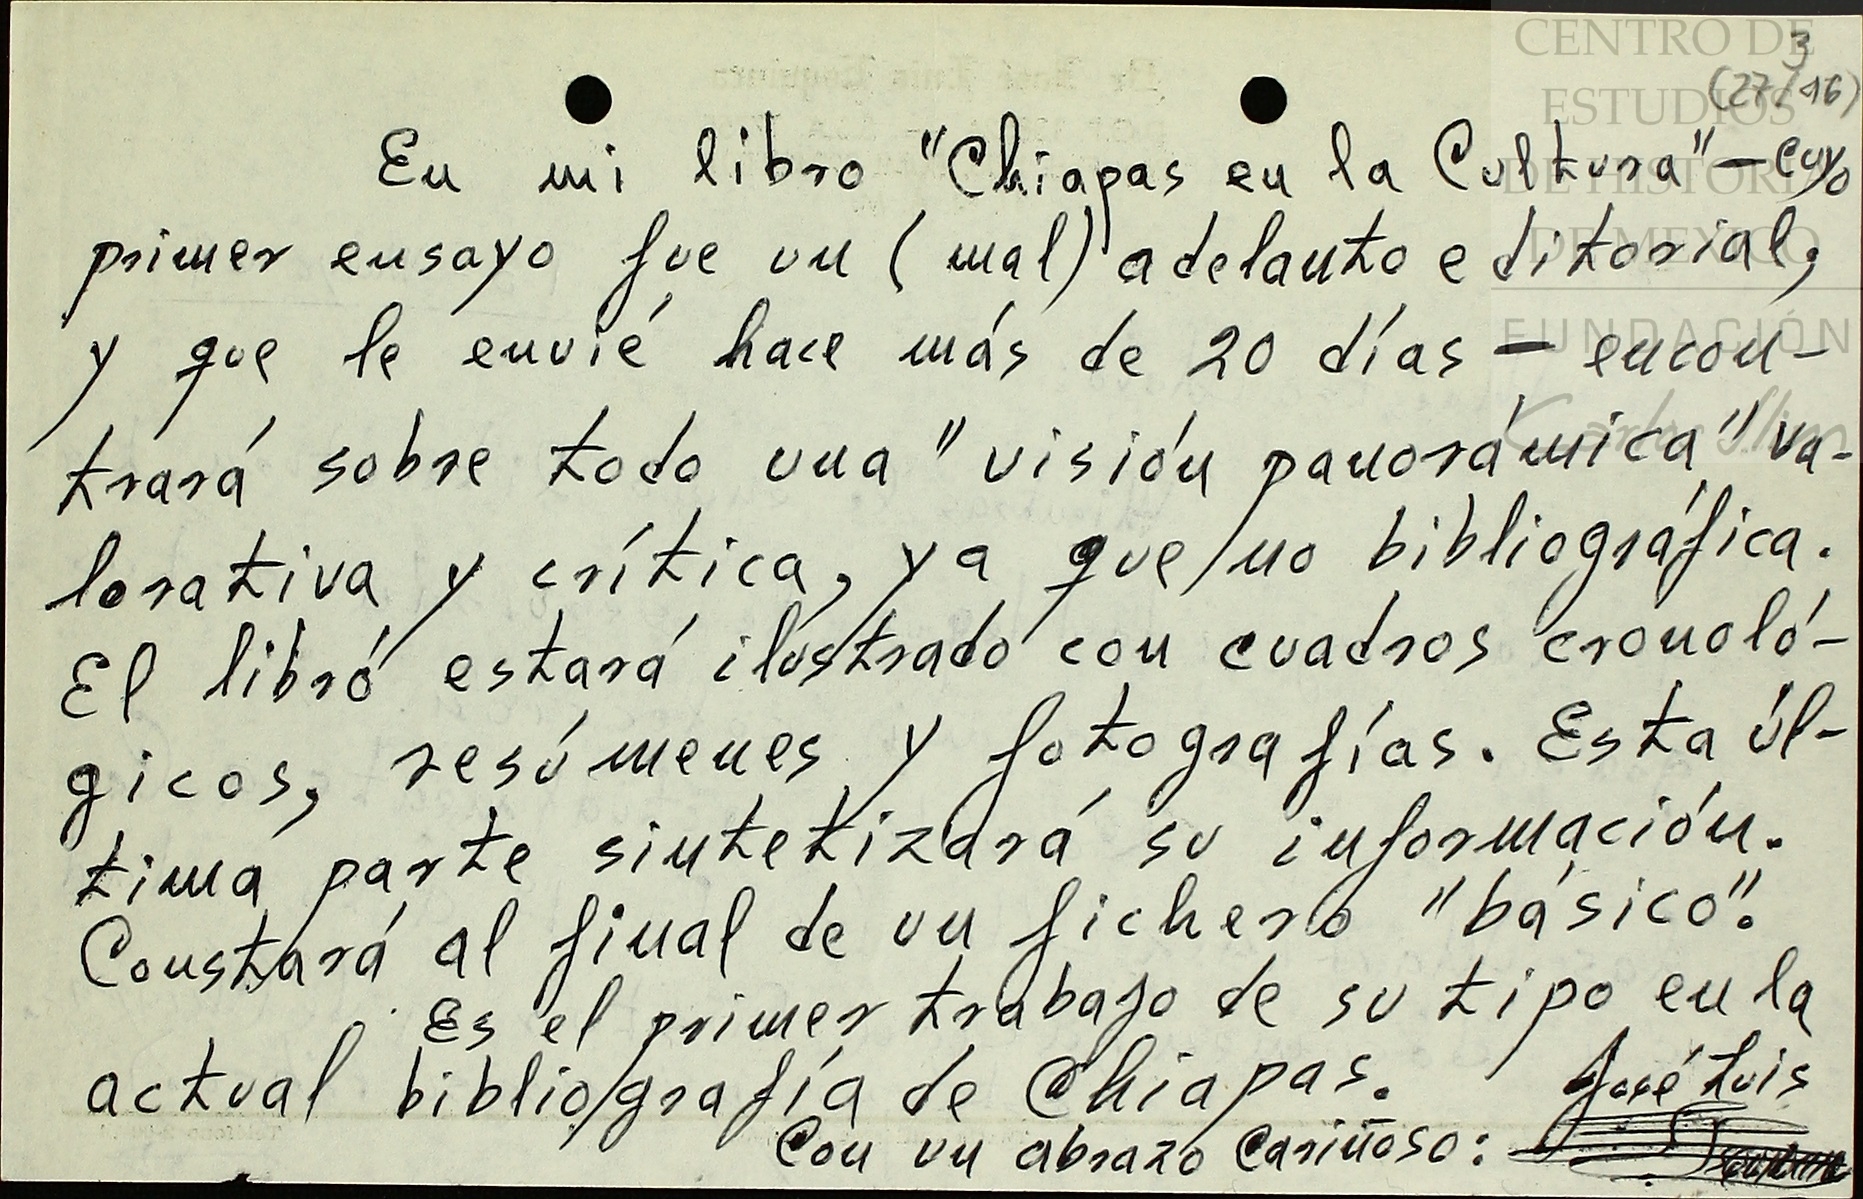 3
(27/16)
CENTRO DE
ESTUDIOS
DE HISTORIA
DE MEXICO
FUNDACIÓN
Carlos Slim
En mi libro "Chiapas en la Cultura" — cuyo
primer ensayo fue un (mal) adelanto editorial,
y que le envié hace más de 20 días — encon-
trará sobre todo una "visión panorámica" va-
lorativa y crítica, ya que no bibliográfica.
El libro estará ilustrado con cuadros cronoló-
gicos, resúmenes y fotografías. Esta úl-
tima parte sintetizará su información.
Constará al final de un fichero "básico".
Es el primer trabajo de su tipo en la
actual bibliografía de Chiapas.
Con un abrazo cariñoso:
José Luis